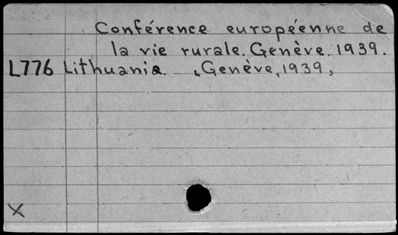 Conférence européenne de
la vie rurale. Genève. 1939.
L776 Lithuania. , Genève, 1939,
X